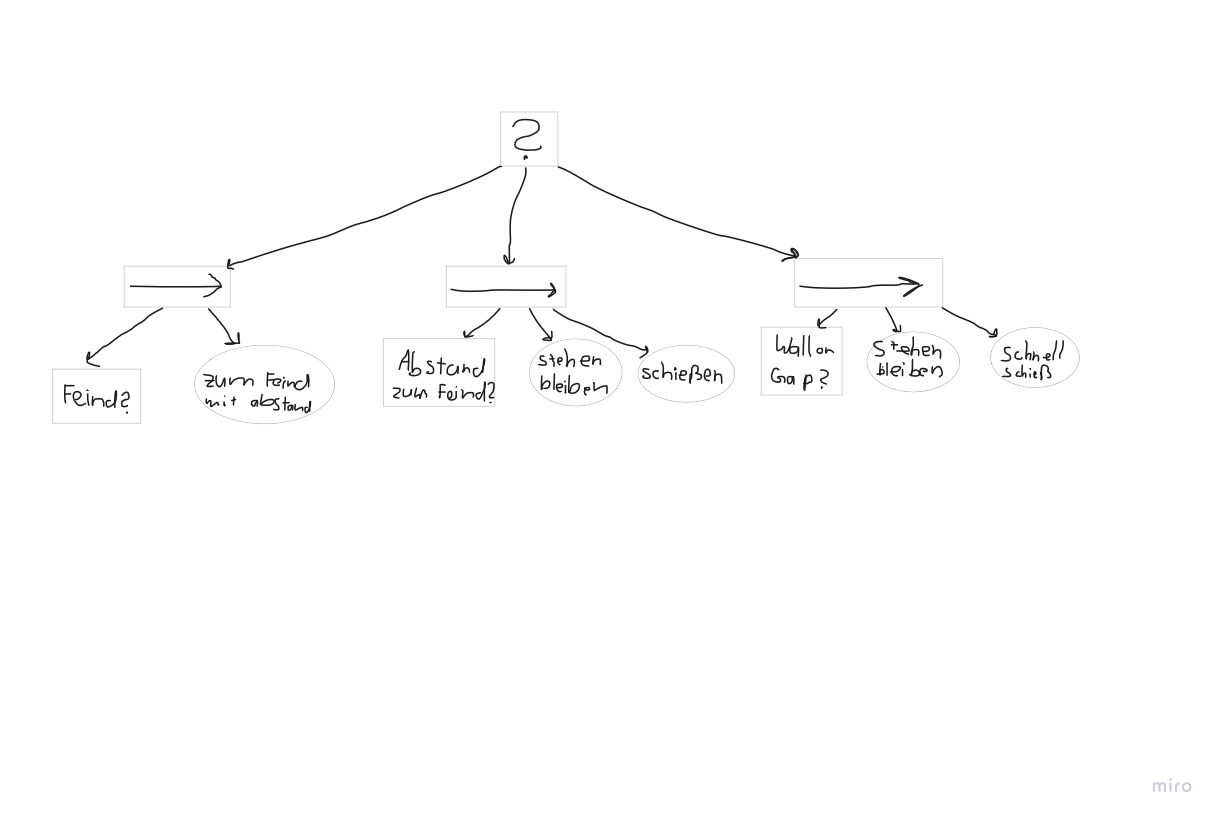 ?
Feind?
zum Feind
mit abstand
Abstand
zum Feind?
stehen
bleiben
schießen
Wall or
Gap?
Stehen
bleiben
Schnell
schieß
miro